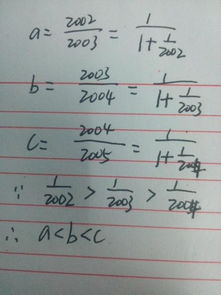 a = 2002/2003 = 1/(1+1/2002)
b = 2003/2004 = 1/(1+1/2003)
c = 2004/2005 = 1/(1+1/2004)
∵ 1/2002 > 1/2003 > 1/2004
∴ a<b<c